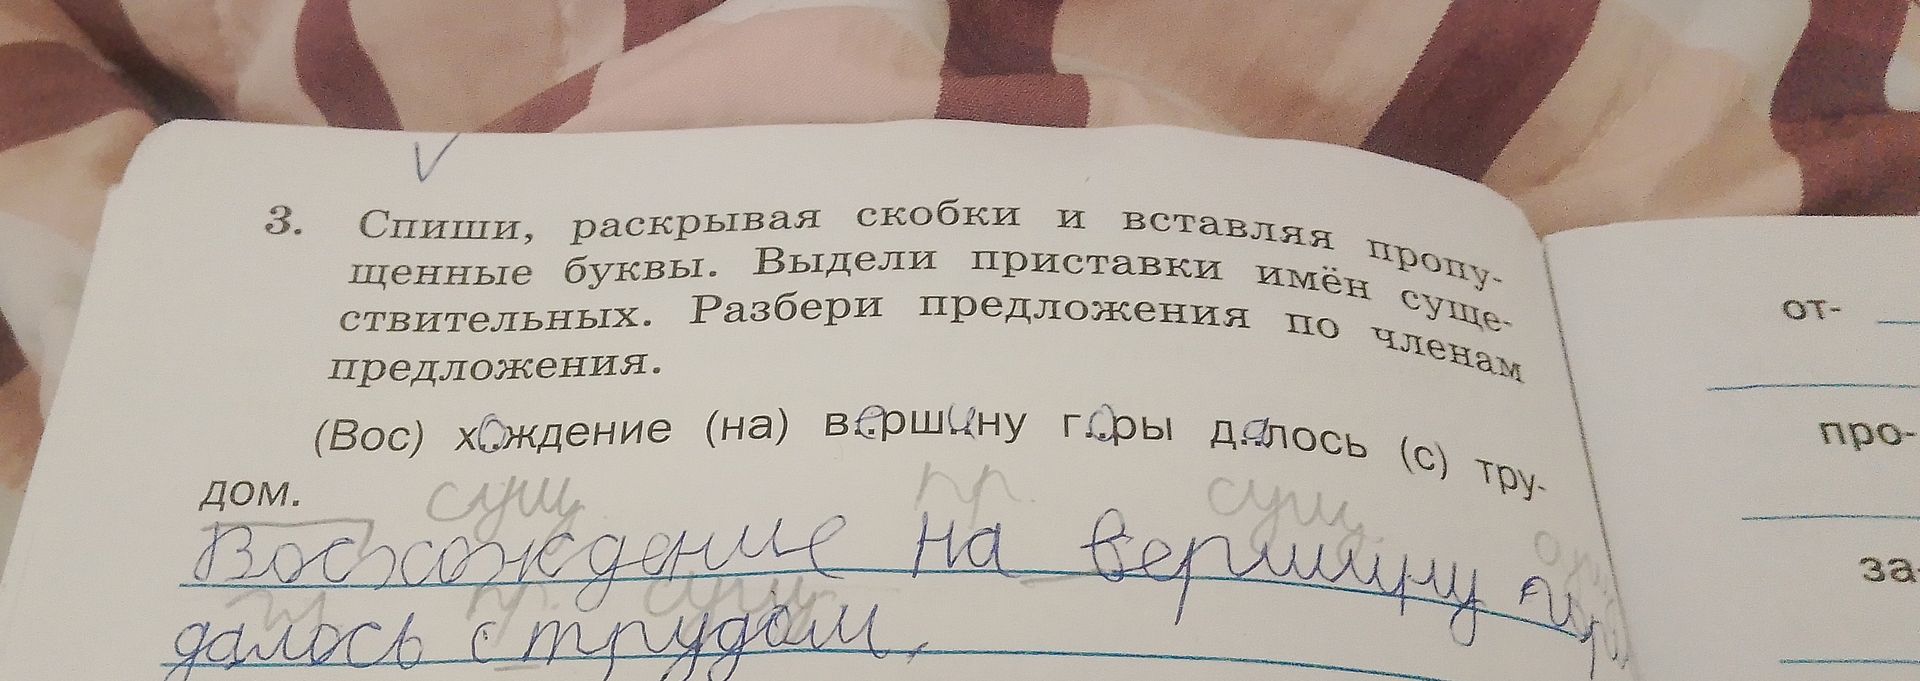 3. Спиши, раскрывая скобки и вставляя пропу-
щенные буквы. Выдели приставки имён суще-
ствительных. Разбери предложения по членам
предложения.
(Вос) хождение (на) вершину горы далось (с) тру-
дом.
сущ. пр. сущ.
Восхождение на вершину
пр. сущ.
далось с трудом.
от-
про-
за-